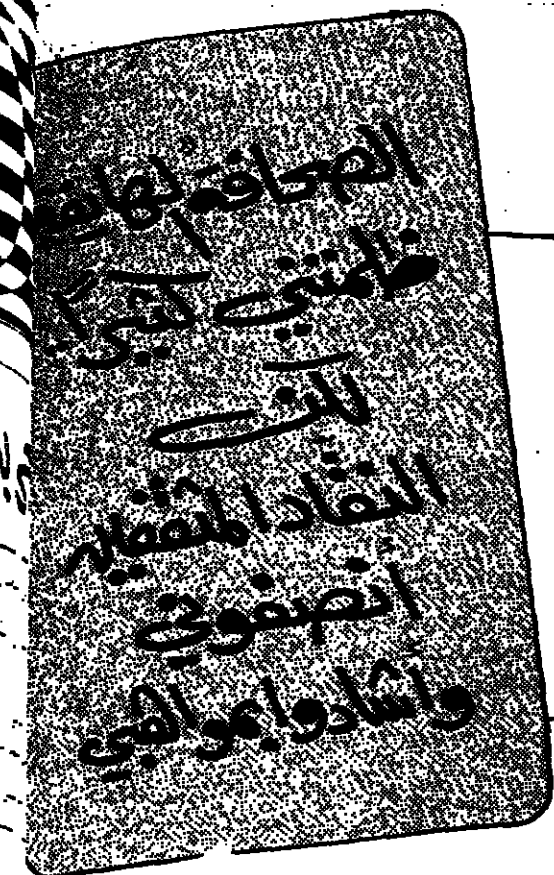 الصحافة لها فضـ
ظلمتني كثيراً..
لكن
النقاد المثقفين
أنصفوني
وأشادوا بمواهبي